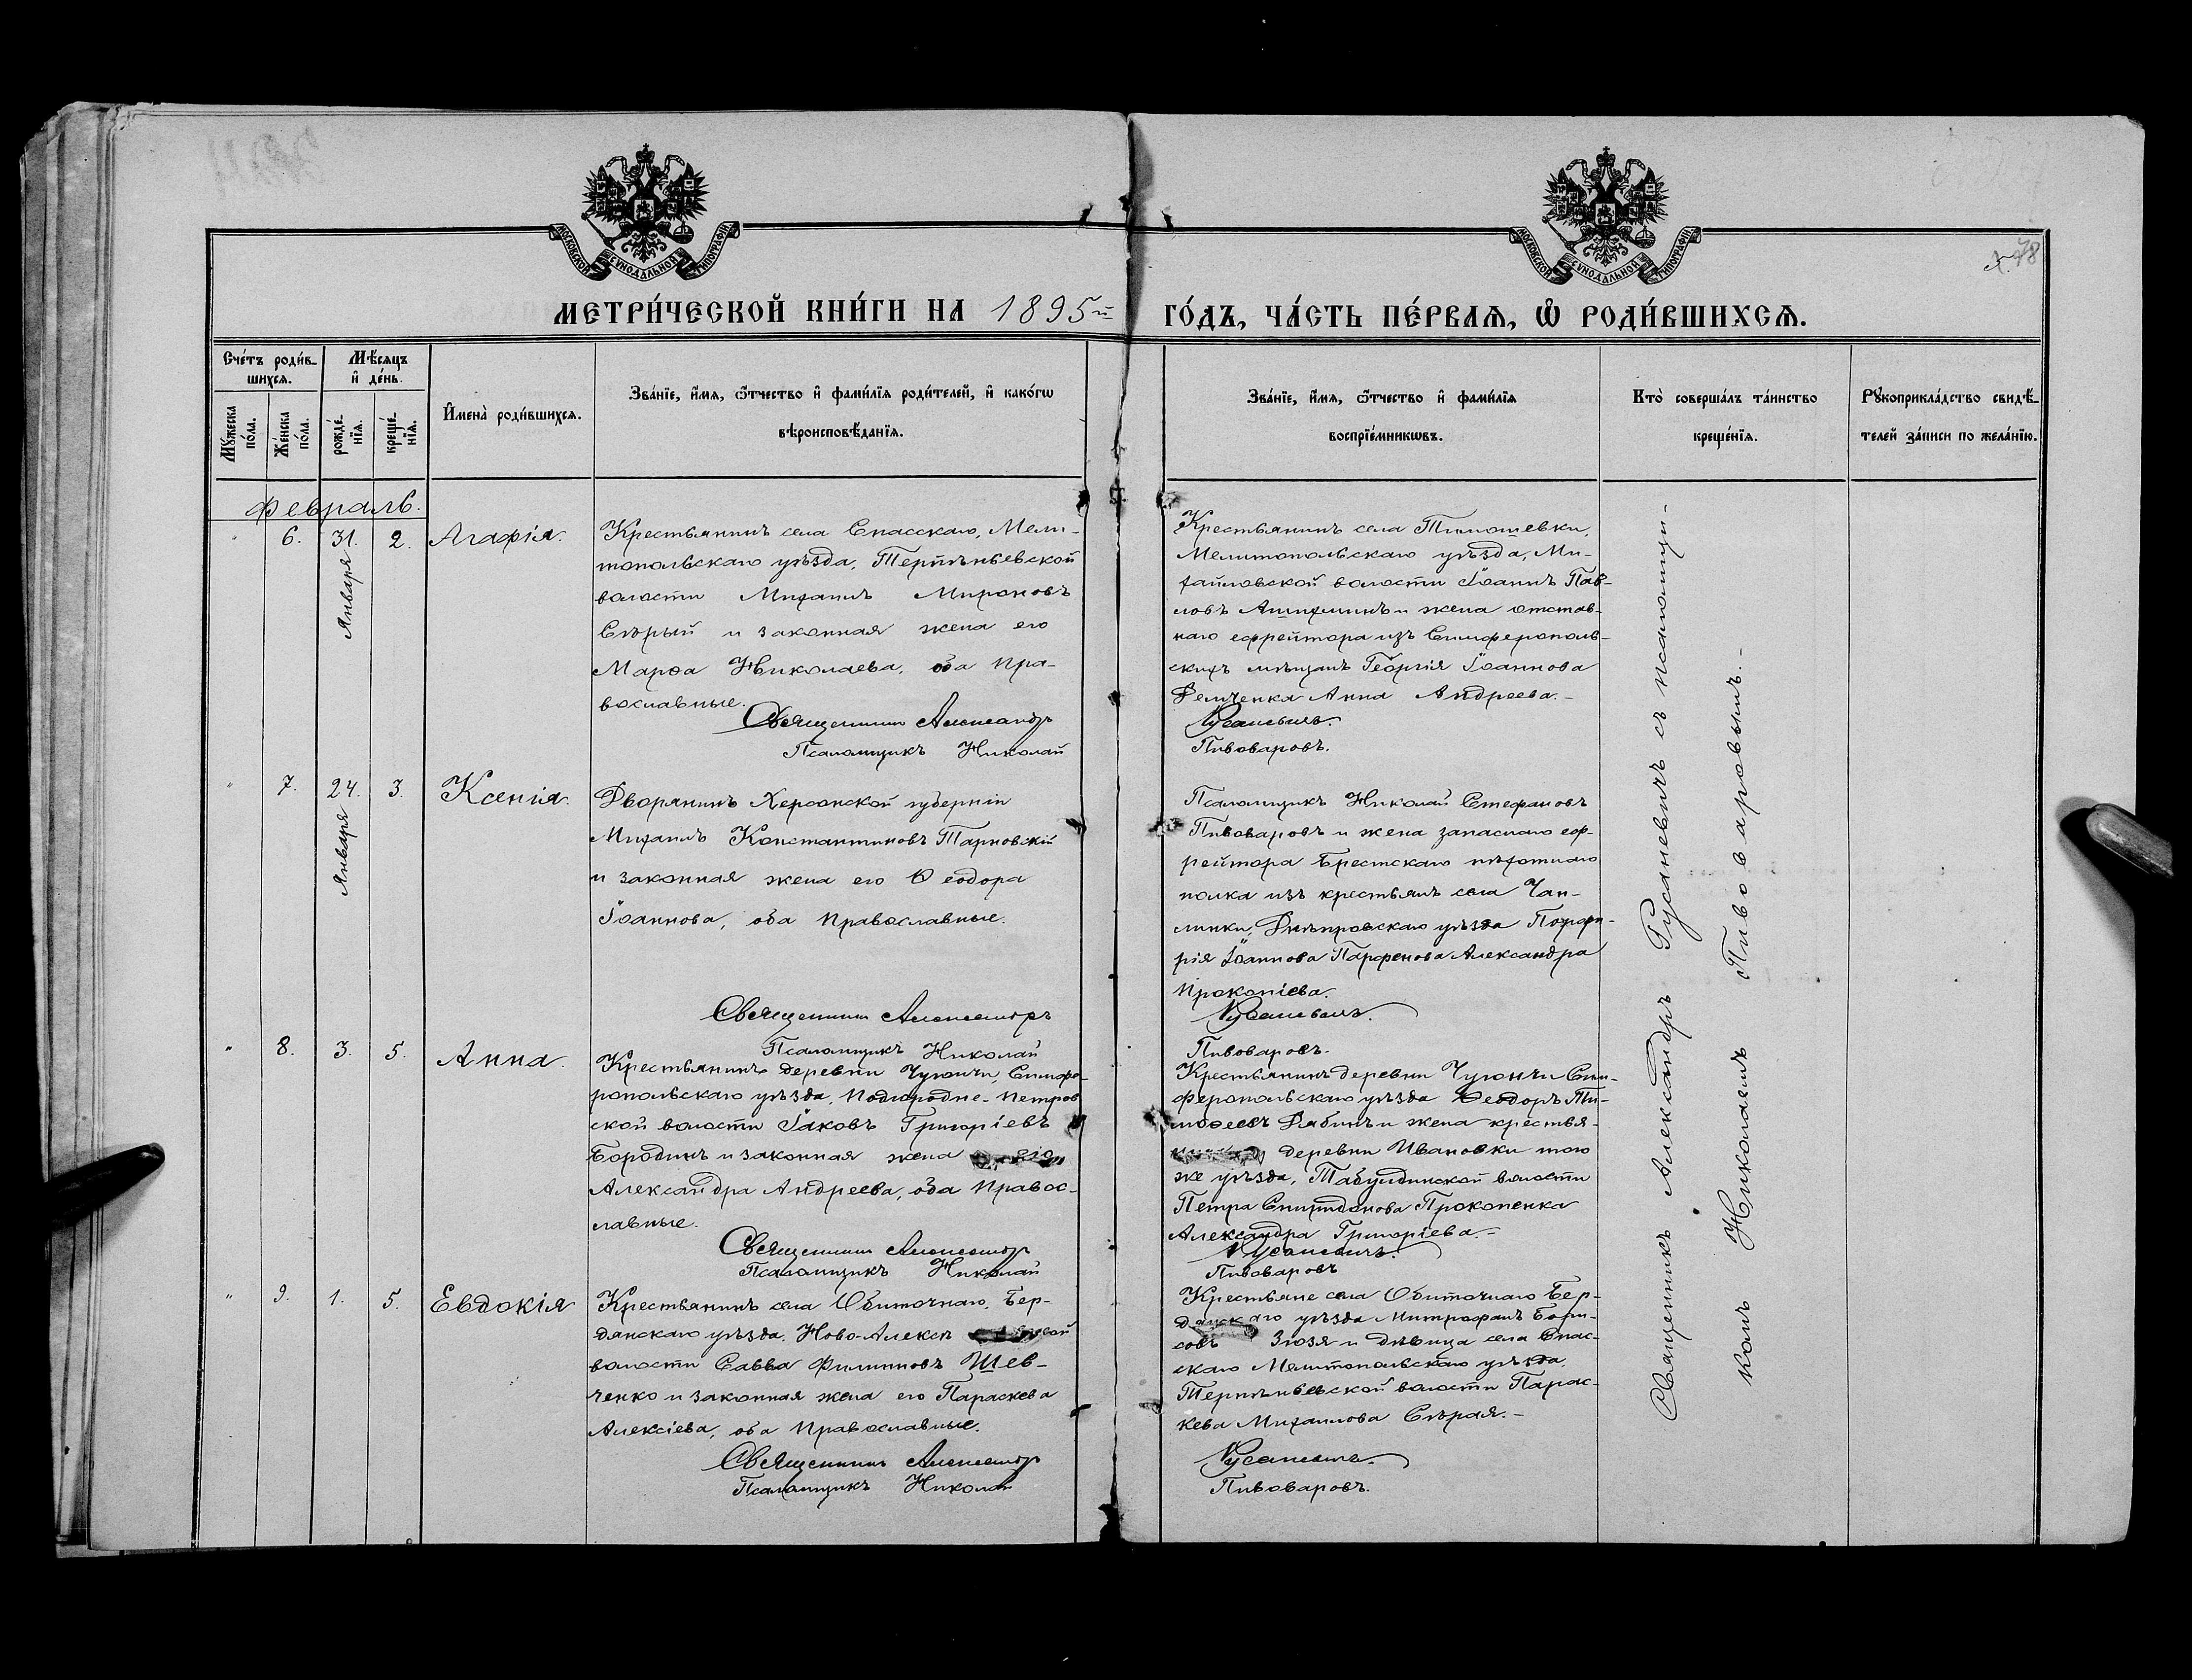 МОСКОВСКОЙ СѴНОДАЛЬНОЙ ТИПОГРАФІИ
МОСКОВСКОЙ СѴНОДАЛЬНОЙ ТИПОГРАФІИ
78
МЕТРИ́ЧЕСКОЙ КНИ́ГИ НА 1895й ГО́ДЪ, ЧА́СТЬ ПЕ́РВАѦ, Ѿ РОДИ́ВШИХСѦ.
Сче́тъ роди́в-
шихсѧ.
Мѣ́сѧцъ
и҆ де́нь.
Мꙋ́жеска
по́ла.
Же́нска
по́ла.
рожде́-
нїѧ.
креще́-
нїѧ.
И҆мена̀ роди́вшихсѧ.
Зва́нїе, и҆́мѧ, ѻ҆́тчество и҆ фами́лїѧ роди́телей, и҆ како́гѡ
вѣроисповѣ́данїѧ.
Зва́нїе, и҆́мѧ, ѻ҆́тчество и҆ фами́лїѧ
воспрїе́мникѡвъ.
Кто̀ соверша́лъ та́инство
креще́нїѧ.
Рꙋкоприкла́дство свидѣ́-
телей за́писи по жела́нїю.
Февраль.
" 6. 31. Января 2. Агафія.
Крестьянинъ села Спасскаго, Мели-
топольскаго уѣзда, Терпѣньевской
волости Михаилъ Мироновъ
Сѣрый и законная жена его
Марѳа Николаева, оба пра-
вославные.
Священникъ Александръ
Псаломщикъ Николай
Крестьянинъ села Тимошевки,
Мелитопольскаго уѣзда, Ми-
хайловской волости Іоаннъ Пав-
ловъ и жена отстав-
наго ефрейтора изъ Симферополь-
скихъ мѣщанъ Георгія Іоаннова
Демченка Анна Андреева.-
Русаневичъ.
Пивоваровъ.
" 7. 24. Января 3. Ксенія.
Дворянинъ Херсонской губерніи
Михаилъ Константиновъ Тарновскій
и законная жена его Ѳеодора
Іоаннова, оба православные.
Священникъ Александръ
Псаломщикъ Николай
Псаломщикъ Николай Стефановъ
Пивоваровъ и жена запаснаго еф-
рейтора Брестскаго пѣхотнаго
полка изъ крестьянъ села Чап-
линки, Днѣпровскаго уѣзда Порфи-
рія Іоаннова Парфенова Александра
Прокопіева.
Русаневичъ.
Пивоваровъ.
" 8. 3. 5. Анна.
Крестьянинъ деревни Чуюнчи, Симфе-
ропольскаго уѣзда, Подгородне-Петров
ской волости Іаковъ Григоріевъ
Бородинъ и законная жена его
Александра Андреева, оба правос-
лавные.
Священникъ Александръ
Псаломщикъ Николай
Крестьянинъ деревни Чуюнчи Сим-
феропольскаго уѣзда Ѳеодоръ Ти-
моѳеевъ Рябинъ и жена крестья-
нина деревни Ивановки того
же уѣзда, Табулдинской волости
Петра Спиридонова Прокопенка
Александра Григоріева.-
Русаневичъ.
Пивоваровъ
" 9. 1. 5. Евдокія
Крестьянинъ села Обиточнаго, Бер-
дянскаго уѣзда, Ново-Алексѣ
волости Савва Филипповъ Шев-
ченко и законная жена его Параскева
Алексіева, оба православные.
Священникъ Александръ
Псаломщикъ Николай
Крестьяне села Обиточнаго Бер-
дянскаго уѣзда Митрофанъ Бори-
совъ Зюзя и дѣвица села Спас-
скаго Мелитопольскаго уѣзда,
Терпѣньевской волости Парас-
кева Михаилова Сѣрая.-
Русаневичъ.
Пивоваровъ.
Священникъ Александръ Русаневичъ съ псаломщи-
комъ Николаемъ Пивоваровымъ.-